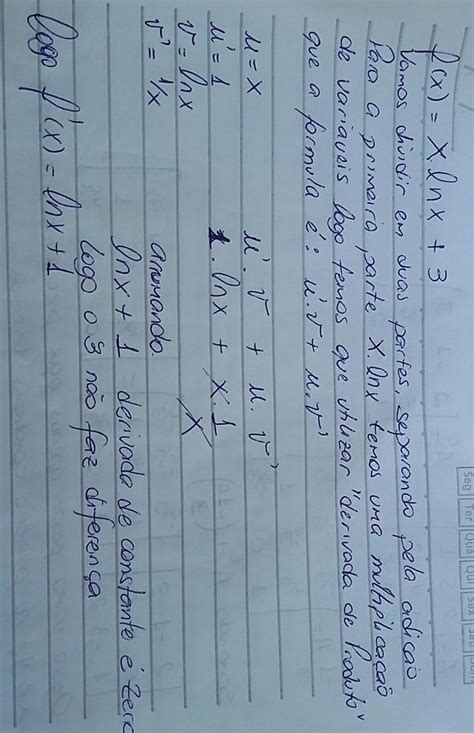 f(x) = x.lnx + 3
Vamos dividir em duas partes, separando pela adição
Para a primeira parte x.lnx temos uma multiplicação
de variáveis logo temos que utilizar "derivada de Produto"
que a formula é: u'.v + u.v'
u = x
u' = 1
v = lnx
v' = 1/x
u'.v + u.v'
1.lnx + x.1
x
arrumando
lnx + 1 - derivada de constante é zero
logo o 3 não faz diferença
logo f'(x) = lnx + 1
Seg Ter Qua Qui Sex